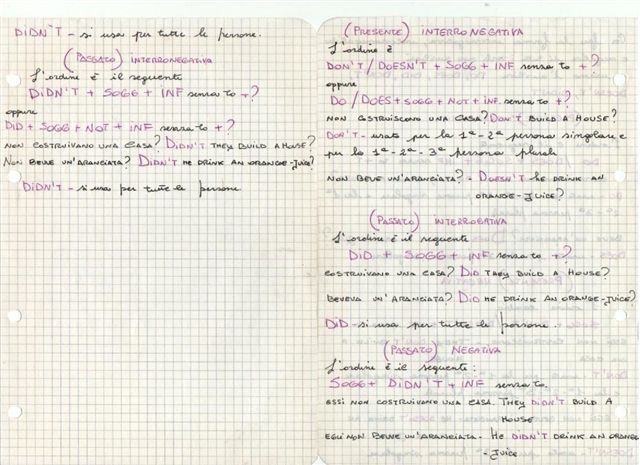 DIDN'T - si usa per tutte le persone.
(PASSATO) INTERRONEGATIVA
L'ordine è il seguente
DIDN'T + SOGG + INF senza to +?
oppure
DID + SOGG + NOT + INF senza to +?
NON COSTRUIVANO UNA CASA? DIDN'T THEY BUILD A HOUSE?
NON BEVVE UN'ARANCIATA? DIDN'T HE DRINK AN ORANGE-JUICE?
DIDN'T - si usa per tutte le persone
(PRESENTE) INTERRONEGATIVA
L'ordine è
DON'T / DOESN'T + SOGG + INF senza to +?
oppure
DO / DOES + SOGG + NOT + INF. senza to +?
NON COSTRUISCONO UNA CASA? DON'T BUILD A HOUSE?
DON'T - usato per la 1ª - 2ª persona singolare e
per la 1ª - 2ª - 3ª persona plurale
NON BEVE UN'ARANCIATA? - DOESN'T HE DRINK AN
ORANGE-JUICE?
(PASSATO) INTERROGATIVA
L'ordine è il seguente
DID + SOGG + INF senza to +?
COSTRUIVANO UNA CASA? DID THEY BUILD A HOUSE?
BEVEVA UN'ARANCIATA? DID HE DRINK AN ORANGE-JUICE?
DID - si usa per tutte le persone.
(PASSATO) NEGATIVA
L'ordine è il seguente:
SOGG + DIDN'T + INF senza to.
ESSI NON COSTRUIVANO UNA CASA. THEY DIDN'T BUILD A
HOUSE
EGLI NON BEVVE UN'ARANCIATA - HE DIDN'T DRINK AN ORANGE
- JUICE